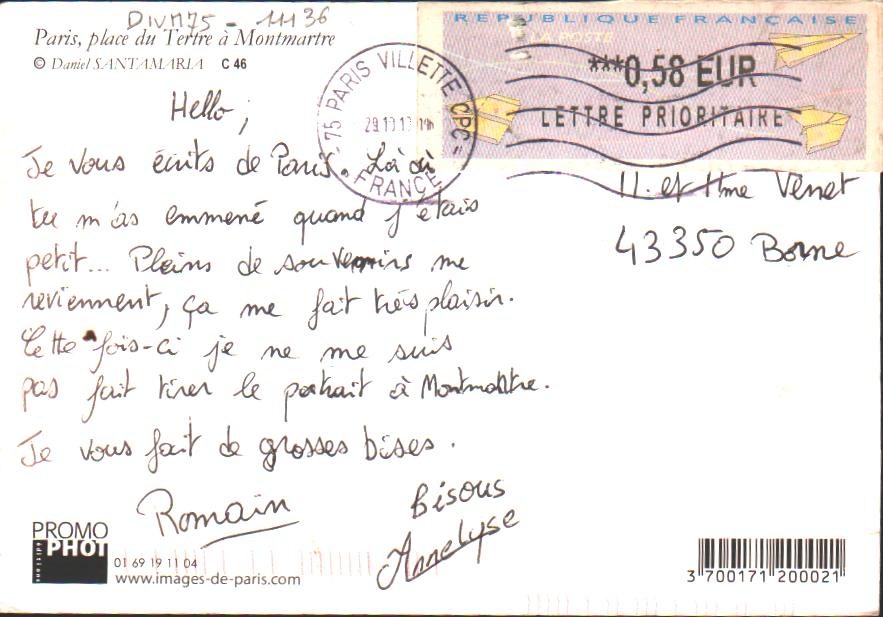 DIVM75 - 11136
Paris, place du Tertre à Montmartre
© Daniel SANTAMARIA C 46
REPUBLIQUE FRANÇAISE
LA POSTE
***0,58 EUR
LETTRE PRIORITAIRE
75 PARIS VILLETTE CPC
FRANCE
Hello,
Je vous écrits de Paris. Là où
tu m'as emmené quand j'étais
petit... Pleins de souvenirs me
reviennent, ça me fait très plaisir.
Cette fois-ci je ne me suis
pas fait tirer le portrait à Montmartre.
Je vous fait de grosses bises.
Romain
bisous
Annelyse
M. et Mme Venet
43350 Borne
PROMO
PHOT
éditions
01 69 19 11 04
www.images-de-paris.com
3 700171 200021